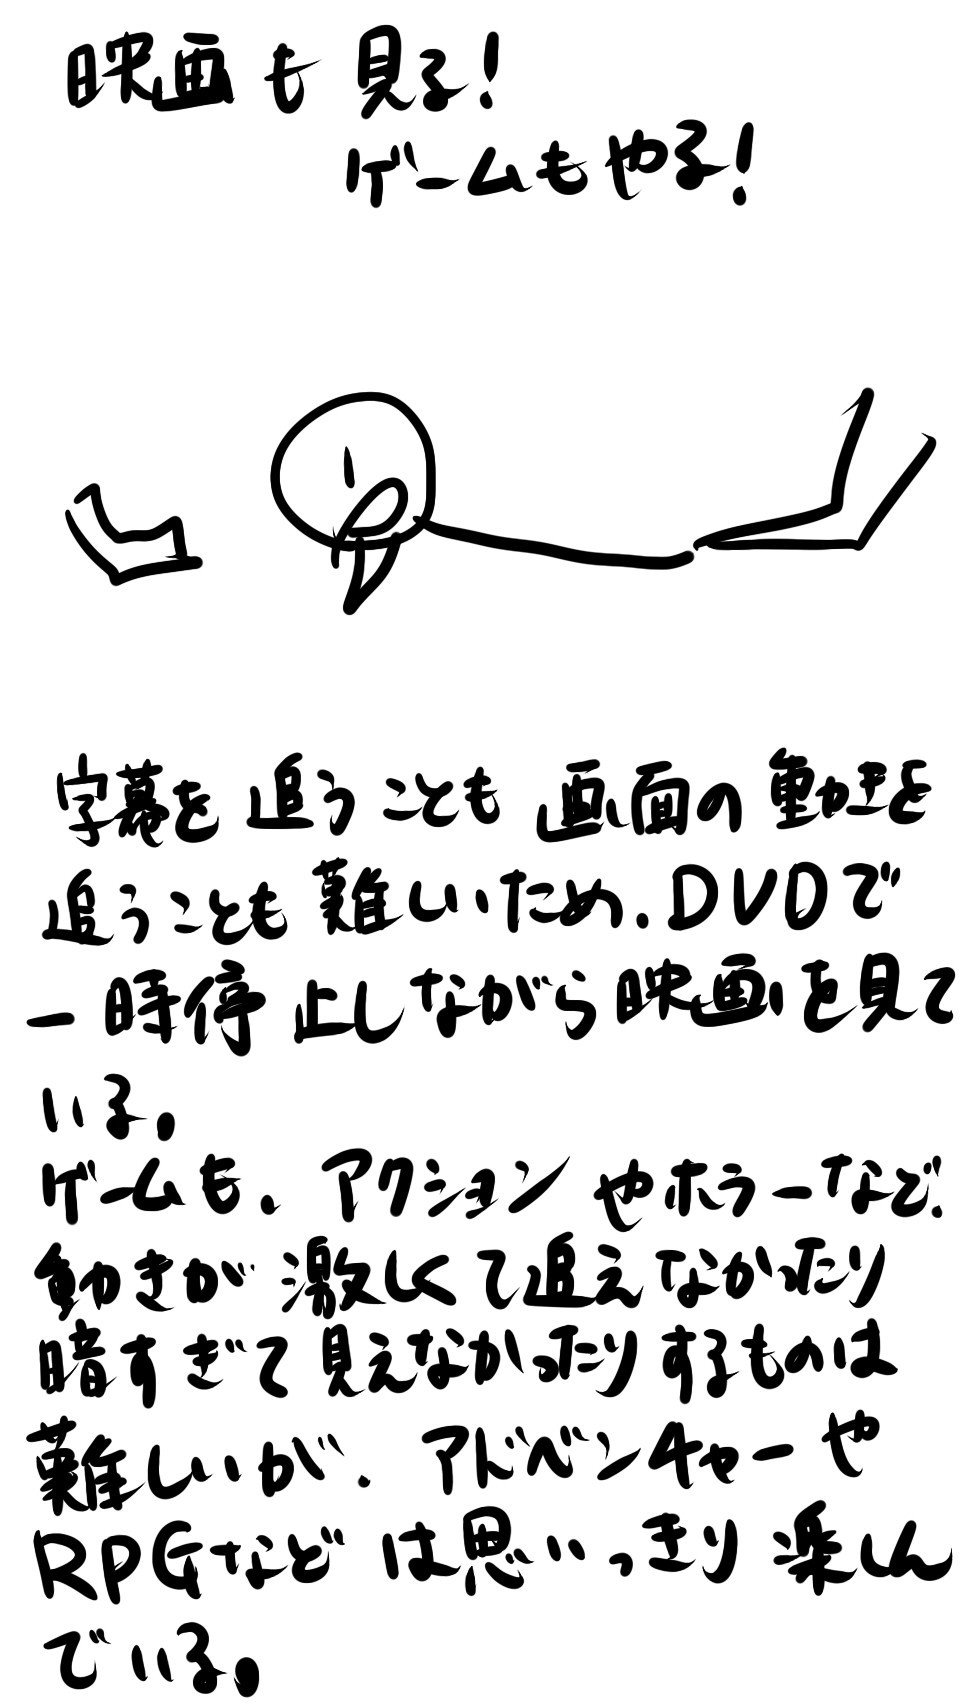 映画も見る!
ゲームもやる!
字幕を追うことも画面の動きを
追うことも難しいため、DVDで
一時停止しながら映画を見て
いる。
ゲームも、アクションやホラーなど、
動きが激しくて追えなかったり
暗すぎて見えなかったりするものは
難しいが、アドベンチャーや
RPGなどは思いっきり楽しん
でいる。